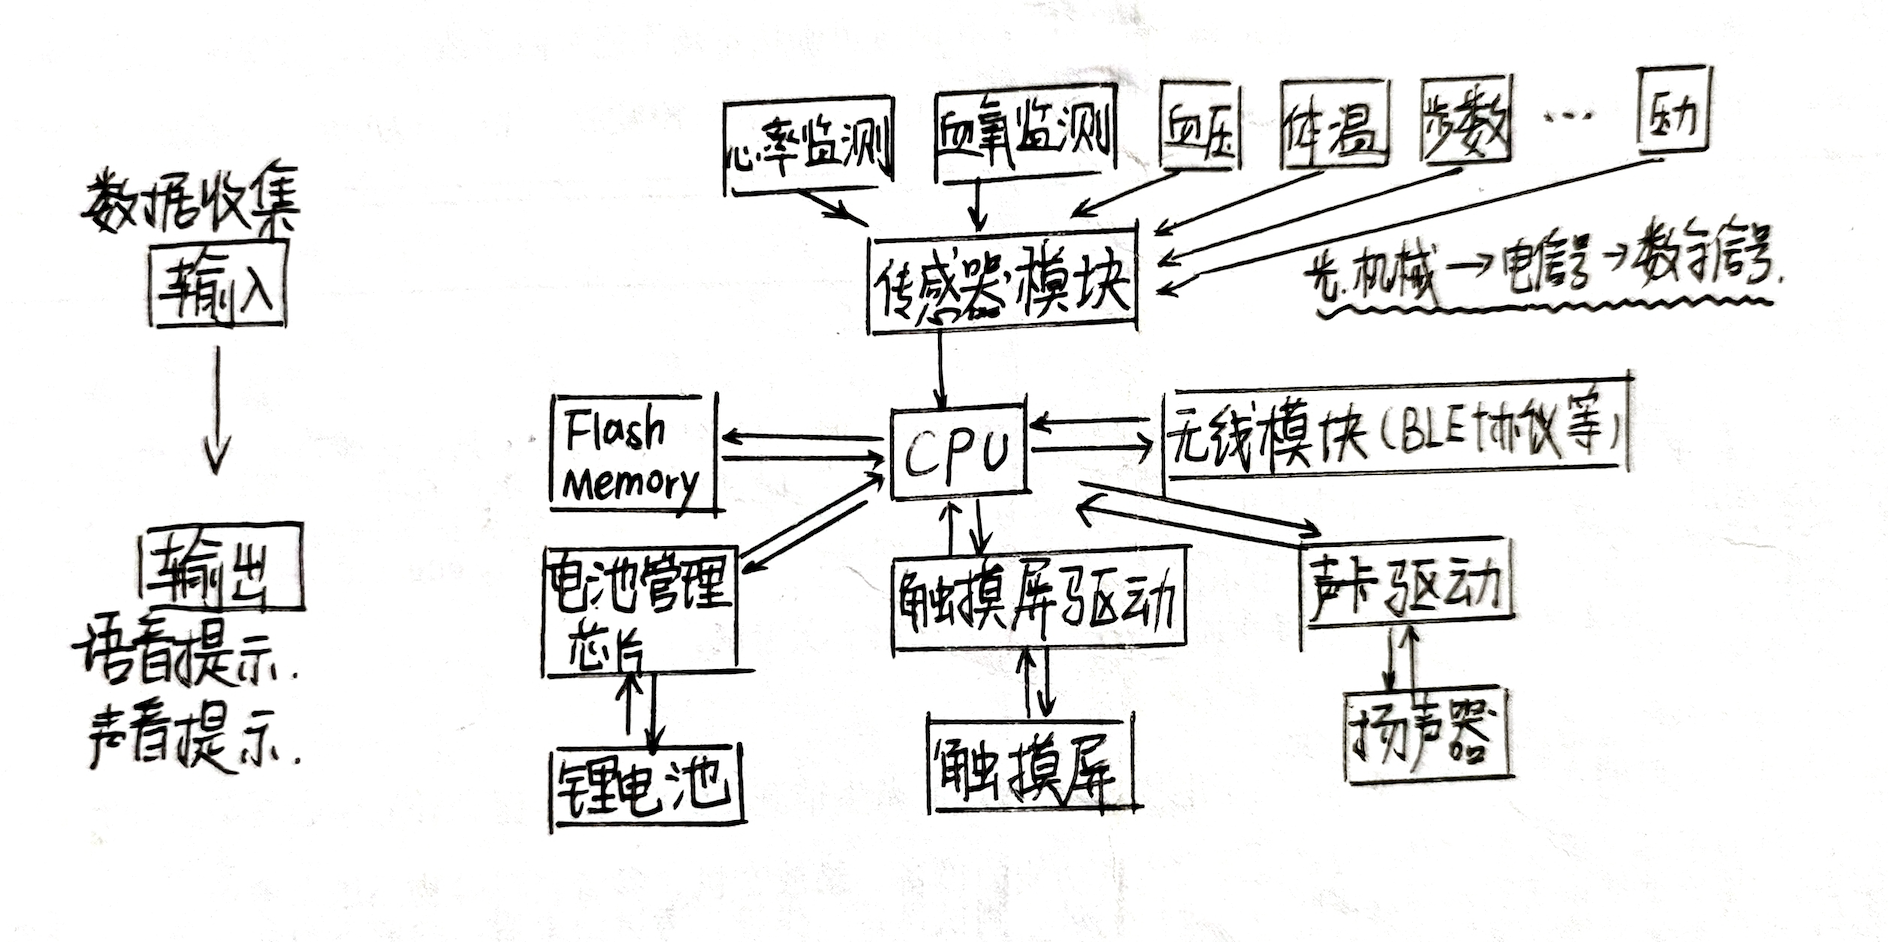 数据收集
输入
输出
语音提示.
声音提示.
心率监测
血氧监测
血压
体温
步数
...
压力
传感器模块
光.机械→电信号→数字信号.
Flash
Memory
CPU
无线模块(BLE协议等)
电池管理
芯片
触摸屏驱动
声卡驱动
锂电池
触摸屏
扬声器